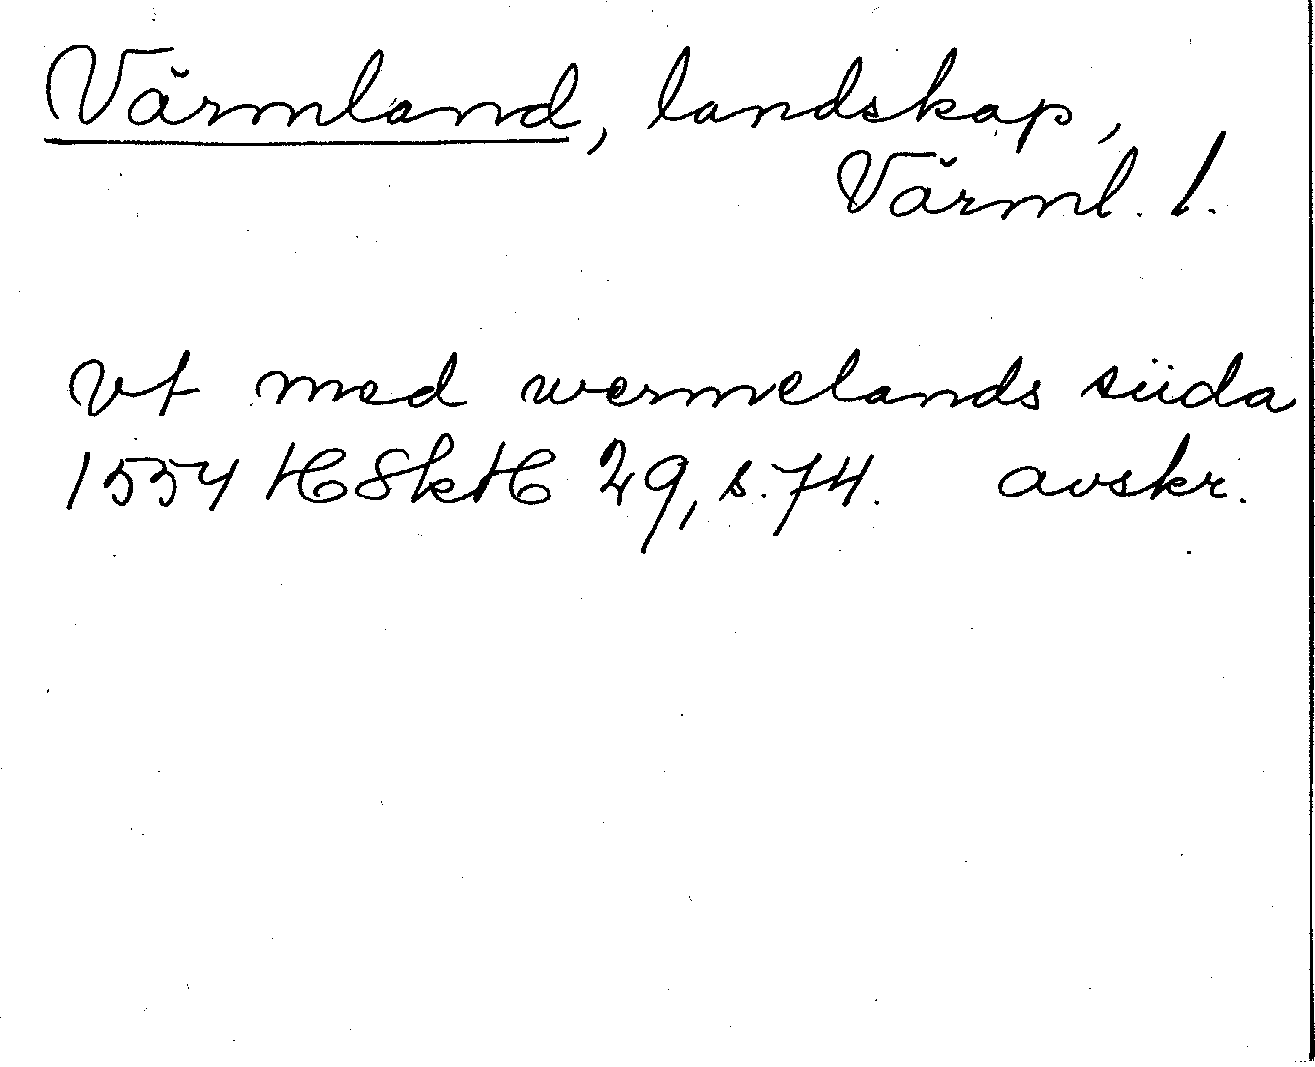 Värmland, landskap,
Värml. l.
vt med wermelands siida
1554 HSkH 29, s. 74. avskr.